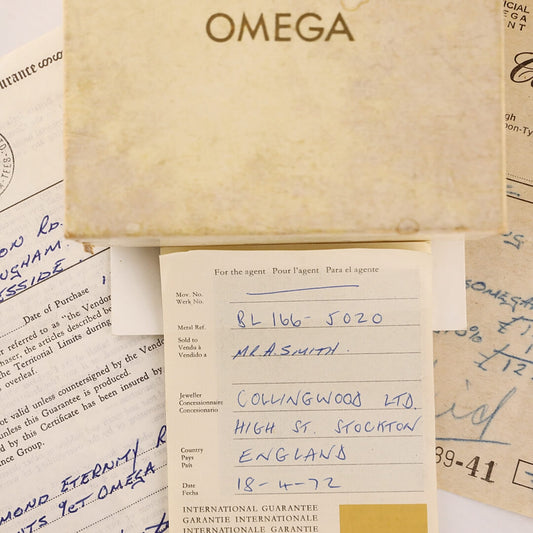 OMEGA
urance
ON RD.
NGHAM.
ESSIDE
Date of Purchase
r referred to as "the Vendor
haser, the articles described be
the Territorial Limits during
overleaf.
ot valid unless countersigned by the Vendo
unless this Guarantee is produced.
d by this Certificate has been insured by
nce Group.
MOND ETERNITY R
NTS 9CT OMEGA
For the agent Pour l'agent Para el agente
Mov. No.
Werk No.
Metal Ref. BL 166-5020
Sold to
Vendu à MR. A. SMITH.
Vendido a
Jeweller COLLINGWOOD LTD.
Concessionnaire
Concesionario HIGH ST. STOCKTON
Country
Pays ENGLAND
País
Date 18-4-72
Fecha
INTERNATIONAL GUARANTEE
GARANTIE INTERNATIONALE
GARANTIA INTERNACIONAL
ICIAL
EGA
NT
gh
on-Ty
OMEGA
39-41